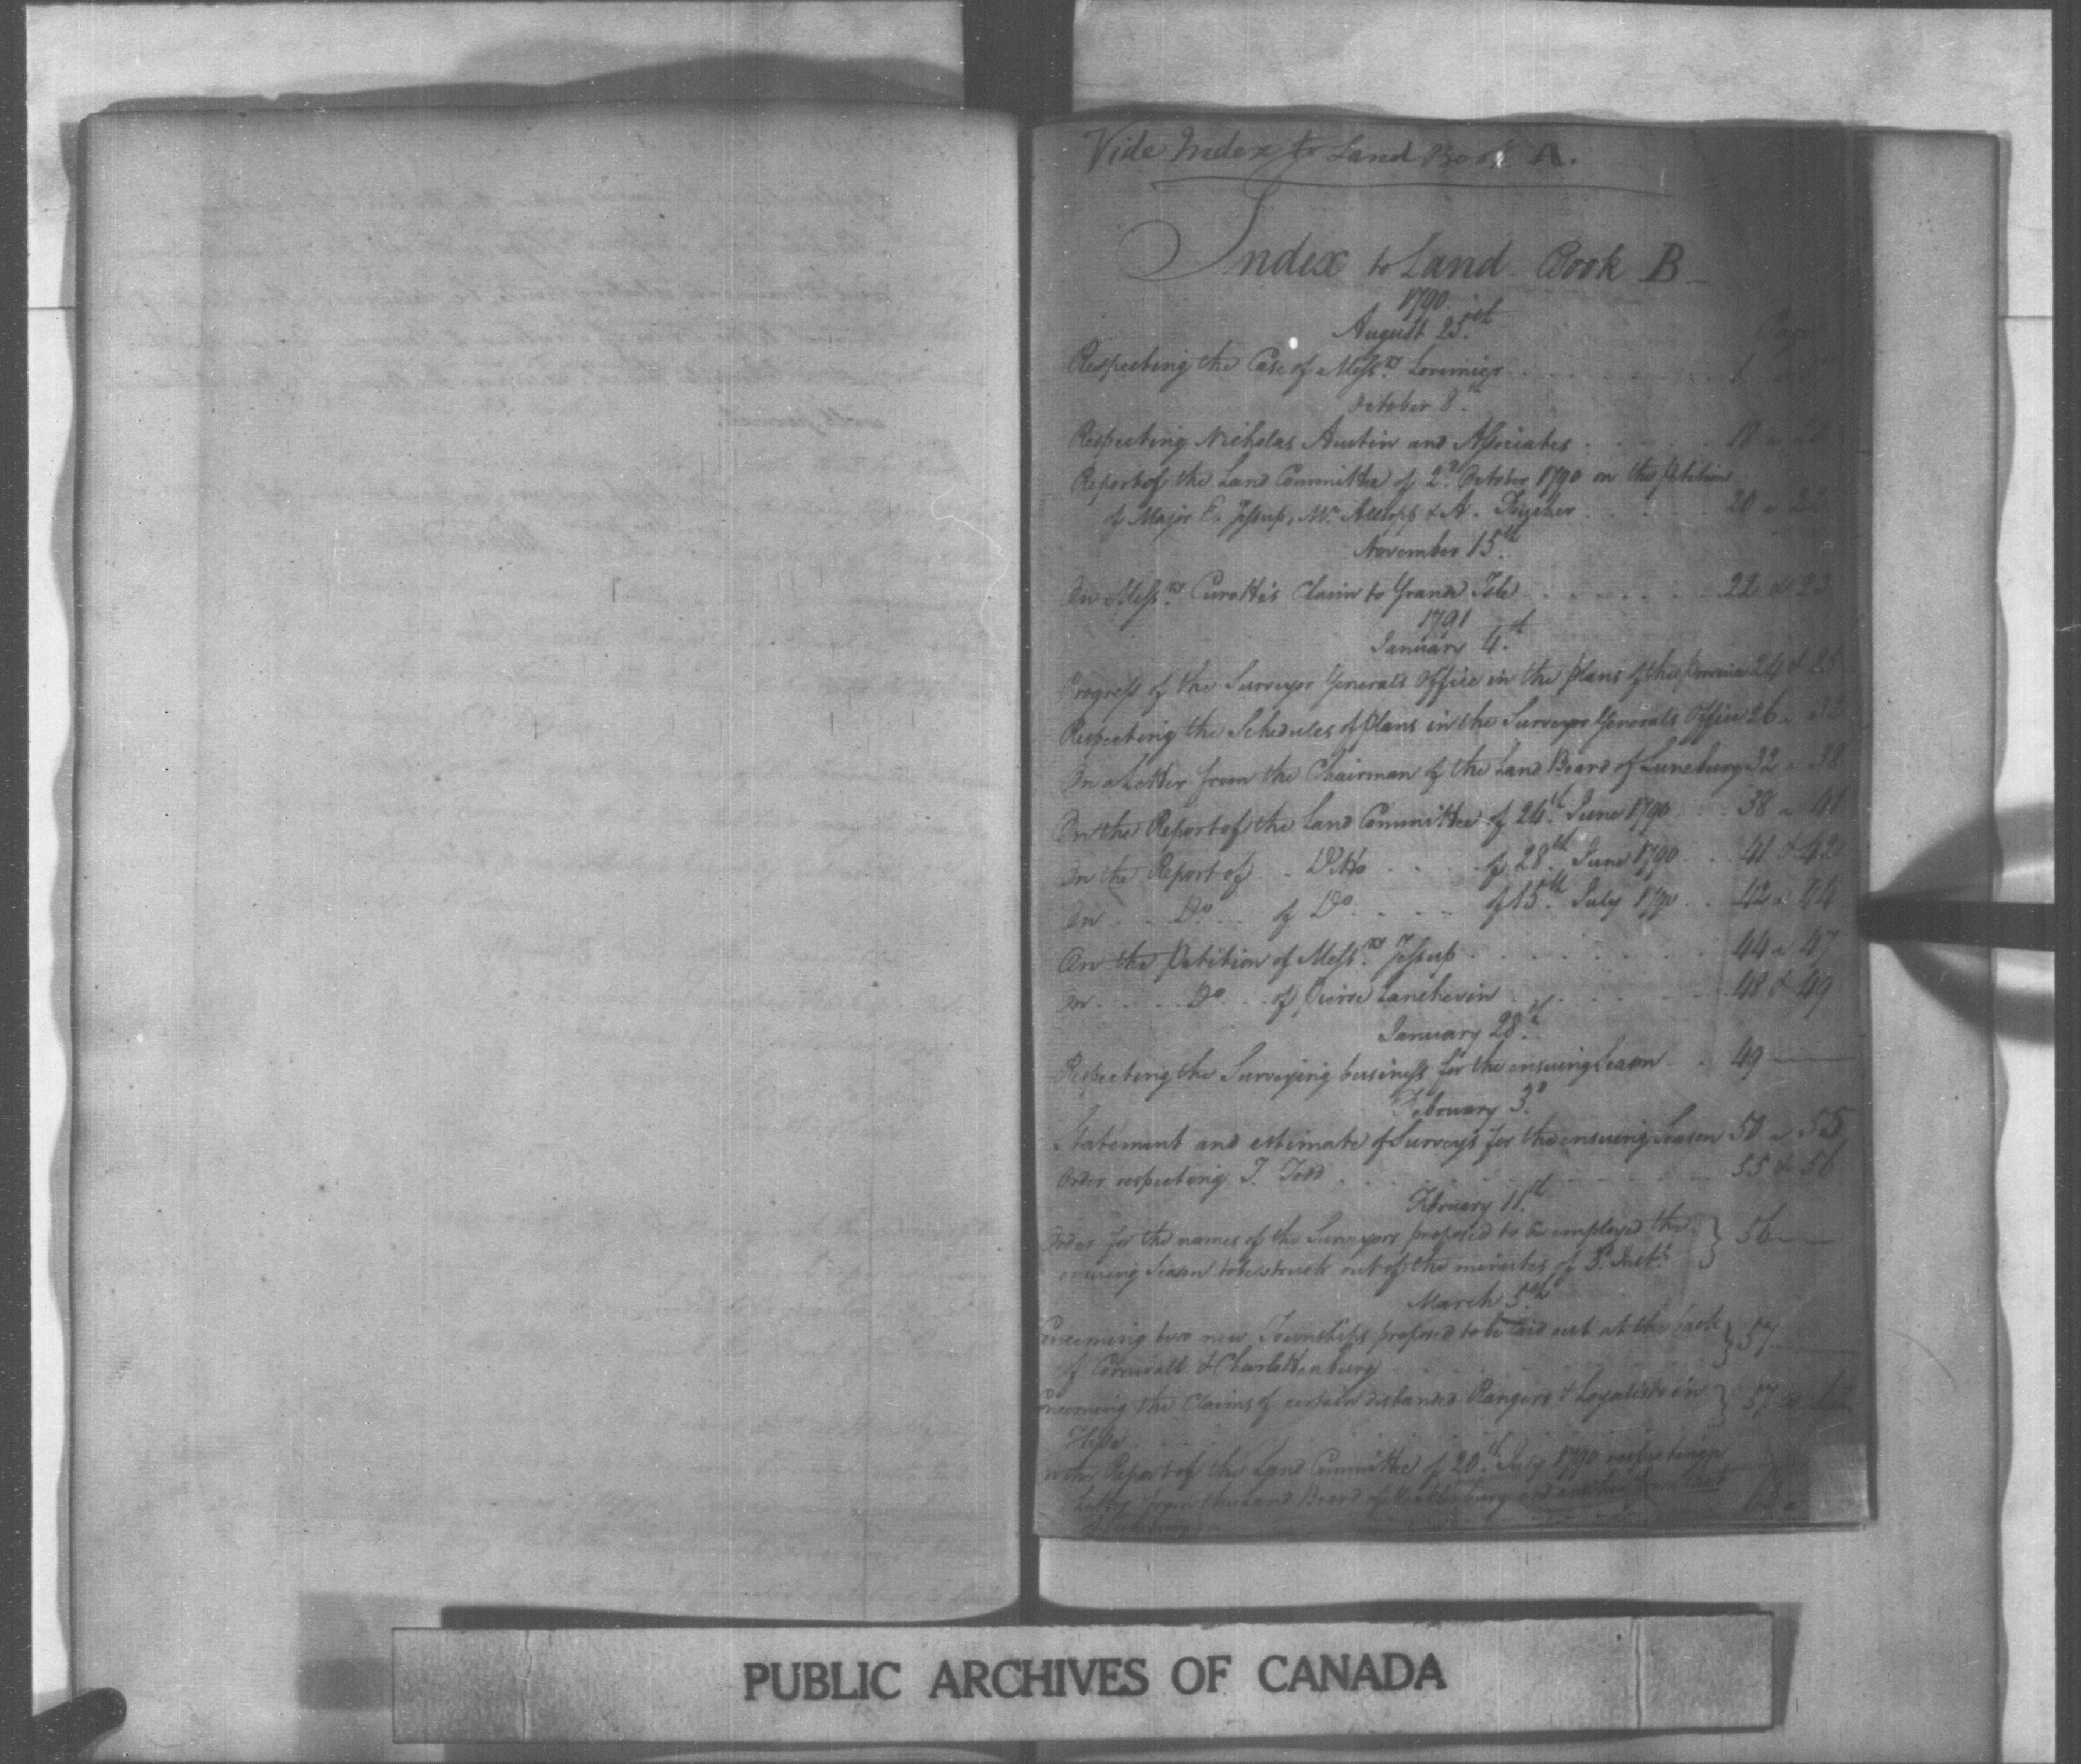 Vide Index to Land Book A.
Index to Land Book B
1790
August 25th
Page
Respecting the Case of Messrs Lorimier 1
October 8th
Respecting Nicholas Austin and Associates 18 a
Report of the Land Committee of 2d October 1790 on the petition
of Major E. Jessup, Mr Allsopp & A. 20 a 22
November 15th
On Messrs Curotte's Claim to Grande Isle 22 & 23
1791
January 4th
Progress of the Surveyor General's Office in the Plans of the Province 24 & 25
Respecting the Schedules of Plans in the Surveyor General's Office 26 a 32
On a Letter from the Chairman of the Land Board of Luneburg 32 a 38
On the Report of the Land Committee of 24th June 1790 38 a 41
On the Report of Ditto of 28th June 1790 41 & 42
On Do of Do of 15th July 1790 42 a 44
On the Petition of Messrs Jessup 44 a 47
On Do of Pierre Lanchevin 48 & 49
January 28th
Respecting the Surveying business for the ensuing Season 49
February 3d
Statement and estimate of Surveys for the ensuing Season 50 a 55
Order respecting T. Todd 55 & 56
February 11th
Order for the names of the Surveyors proposed to be employed the } 56
ensuing Season to be struck out of the minutes of 3d Instt
March 5th
Concerning two new Townships proposed to be laid out at the back } 57
of Cornwall & Charlottenburg
Concerning the Claims of certain disbanded Rangers & Loyalists in } 57 a
Hesse
On the Report of the Land Committee of 20th July 1790 respecting a
Letter from the Land Board of Mecklenburg and another from that
of Luneburg
PUBLIC ARCHIVES OF CANADA